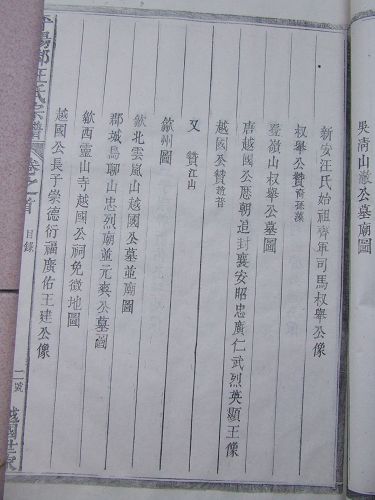 吳清山敝公墓廟圖
新安汪氏始祖齊軍司馬叔舉公像
叔舉公贊 裔孫藻
登嶺山叔舉公墓圖
唐越國公歷朝追封襄安昭忠廣仁武烈英顯王像
越國公贊 趙普
又贊 江山
歙州圖
歙北雲嵐山越國公墓並廟圖
郡城烏聊山忠烈廟並元奭公墓圖
歙西靈山寺越國公祠免徵地圖
越國公長子崇德衍福廣佑王建公像
平陽郡汪氏宗譜
卷之首
目錄
二號
越國世家